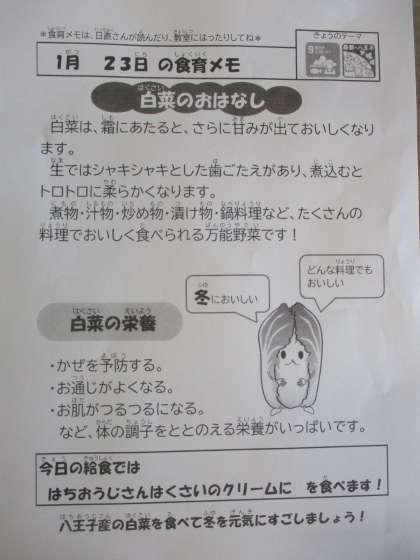 ＊食育メモは、日直さんが読んだり、教室にはったりしてね＊
きょうのテーマ
1月　23日 の食育メモ
白菜のおはなし
白菜は、霜にあたると、さらに甘みが出ておいしくなり
ます。
生ではシャキシャキとした歯ごたえがあり、煮込むと
トロトロに柔らかくなります。
煮物・汁物・炒め物・漬け物・鍋料理など、たくさんの
料理でおいしく食べられる万能野菜です！
冬においしい
どんな料理でも
おいしい
白菜の栄養
・かぜを予防する。
・お通じがよくなる。
・お肌がつるつるになる。
など、体の調子をととのえる栄養がいっぱいです。
今日の給食では
はちおうじさんはくさいのクリームに　を食べます！
八王子産の白菜を食べて冬を元気にすごしましょう！